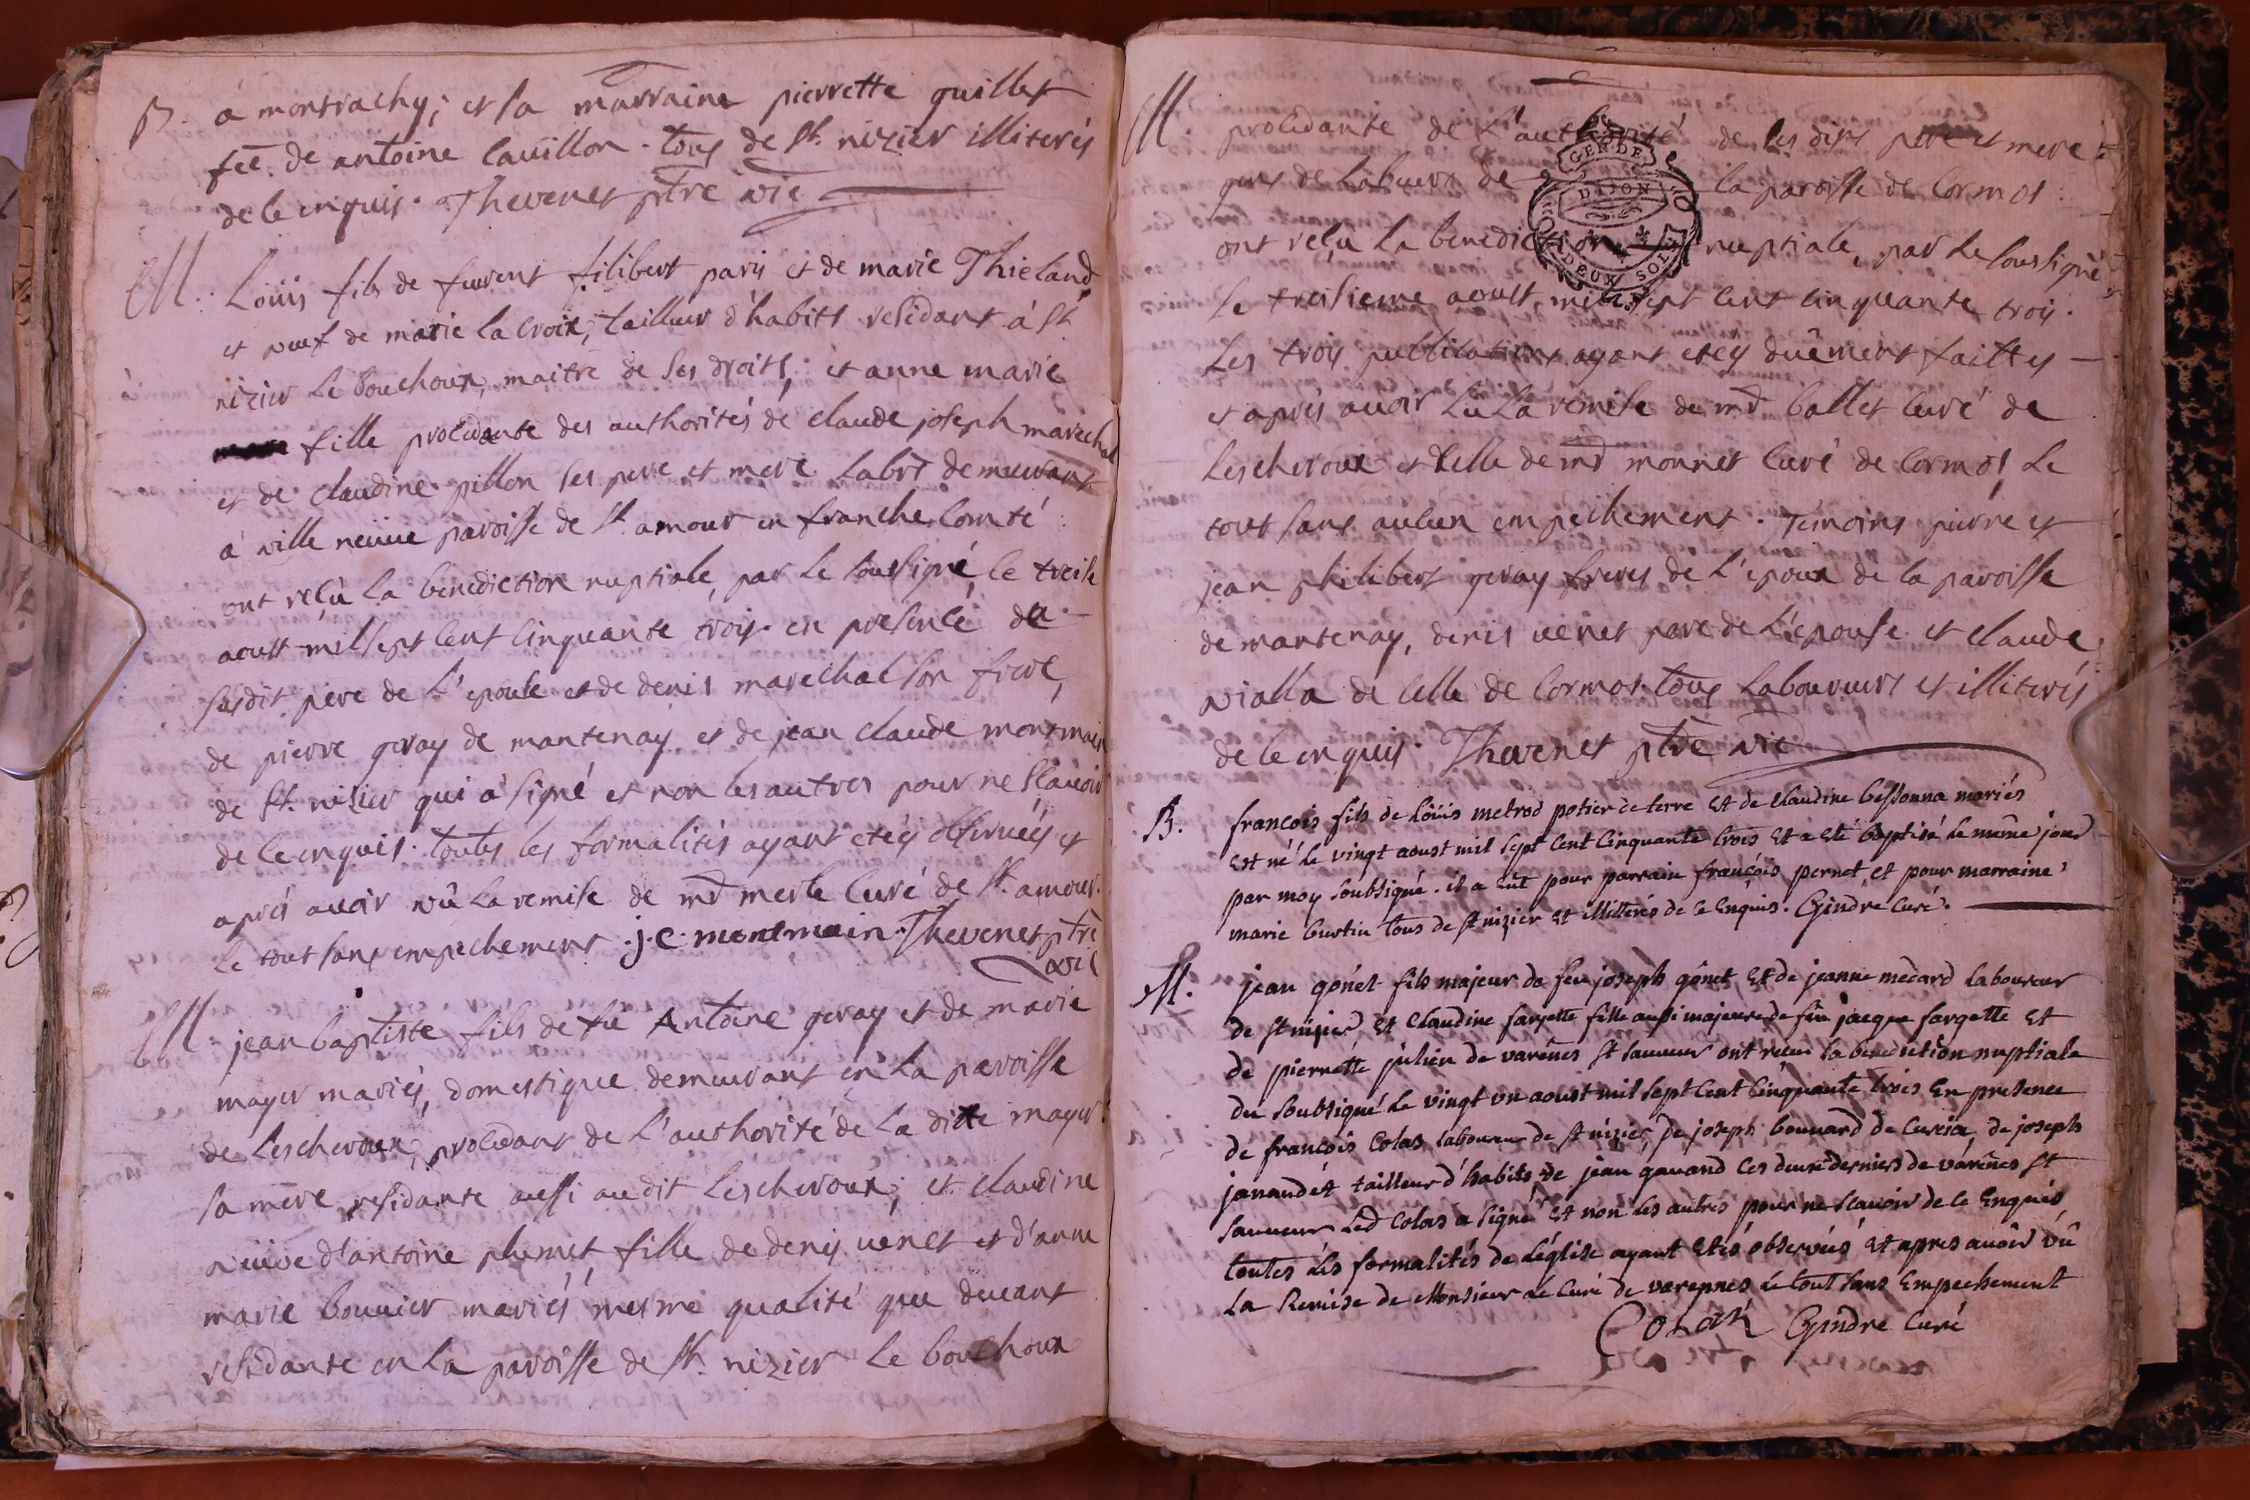 B. à montrachy; et sa marraine pierrette guillet
fée. de antoine Cauillon. tous de St. nizier illiterés
de ce enquis. Thevenet ptre vic
M. Loüis fils de furent filibert paris et de marie Thieland
et veuf de marie la Croix, tailleur d'habits residant à St
nizier le Bouchoux, maitre de ses droits; et anne marie
fille procedante des authorités de claude joseph marechal
et de claudine pillon ses pere et mere labrs demeurant
à ville neuue paroisse de St. amour en franche Comté
ont reçu la benediction nuptiale, par le soussigné le treise
aoust mil sept cent cinquante trois. en presence du
susdit pere de l'epouse et de denis marechal son frere,
de pierre geray de mantenay et de jean claude montmain
de St. nizier qui a signé et non les autres pour ne sçauoir
de ce enquis. toutes les formalités ayant eteés obseruées et
aprés auoir vû la remise de mr merle Curé de St. amour.
le tout sans empechement. j. c. montmain. Thevenet ptre
vic
M. jean baptiste fils de feu Antoine geray et de marie
mayer mariés, domestique demeurant en la paroisse
de Lescheroux, procedant de l'authorité de la ditte mayer
sa mere residante aussi audit Lescheroux; et claudine
veuve d'antoine plumet, fille de denis uenet et d'anne
marie bouuier mariés mesme qualité que deuant
residante en la paroisse de St. nizier le bouchoux
M. procedante de l'authorité de ses dits pere et mere
gens de labeurs de la paroisse de Cormos
ont reçu la benediction nuptiale, par le soussigné
GEN DE
DIJON
DEUX SOLS
le treisieme aoust, mil sept cent cinquante trois.
Les trois publications ayant eteés duëment faittes
et aprés auoir lu la remise de mr ballet Curé de
Lescheroux et celle de mr monnet Curé de Cormos, le
tout sans aucun empechement. temoins pierre et
jean philibert geray freres de l'epoux de la paroisse
de mantenay, denis uenet pere de l'epouse et claude
vialla de celle de Cormos tous laboureurs et illiterés
de ce enquis. Thevenet ptre vic
B. francois fils de loüis metrod potier de terre Et de Claudine bessonna mariés
Est né le vingt aoust mil sept Cent Cinquante trois Et a eté baptisé le même jour
par moy soubsigné. il a eüt pour parrain françois pernet et pour marraine
marie burtin tous de st nizier Et illitterés de ce Enquis. Gindre Curé.
M. jean gonet fils majeur de feu joseph gonet Et de jeanne medard laboureur
de st nizier Et Claudine fargette fille aussi majeure de feu jacque fargette Et
de pierrette julien de varênes st sauueur ont receu la benediction nuptiale
du soubsigné le vingt vn aoust mil sept Cent Cinquante trois En presence
de francois Colas laboureur de st nizier, de joseph bouuard de Curcia, de joseph
janaudet tailleur d'habits, de jean gauand Ces deux derniers de varênes st
sauueur led Colas a signé Et non les autres pour ne sçauoir de ce Enquis
toutes les formalités de L'église ayant Etés observés Et apres auoir vû
La Remise de Monsieur Le Curé de varennes Le tout sans Empechement
Colas Gindre Curé